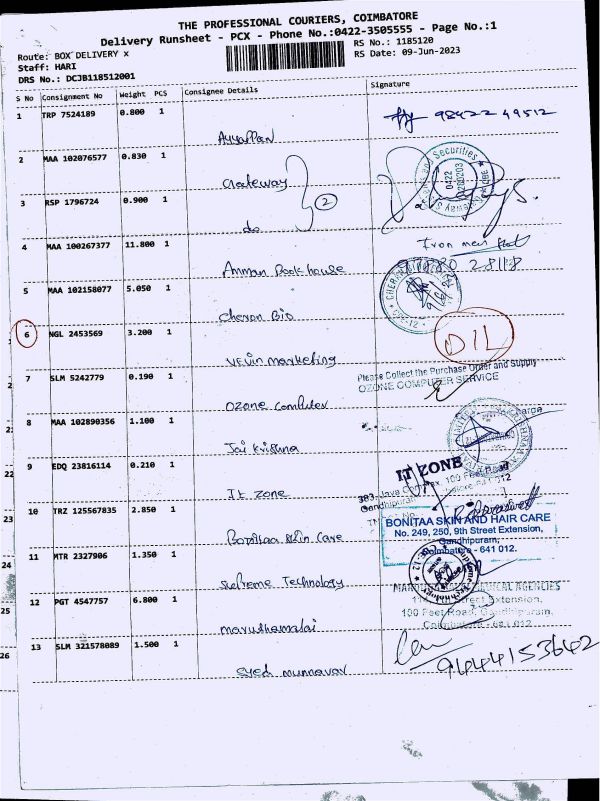 THE PROFESSIONAL COURIERS, COIMBATORE
Delivery Runsheet - PCX - Phone No.:0422-3505555 - Page No.:1
Route: BOX DELIVERY x
RS No.: 1185120
Staff: HARI
RS Date: 09-Jun-2023
DRS No.: DCJB118512001
S No Consignment No Weight PCS Consignee Details Signature
1 TRP 7524189 0.800 1
98422 49512
Ayyappan
2 MAA 102076577 0.830 1
Gateway
2
3 RSP 1796724 0.900 1
do
4 MAA 100267377 11.800 1
Iron men
Amman Book house
5 MAA 102158077 5.050 1
Cheran Bio
6 NGL 2453569 3.200 1
DIL
Vevin marketing
7 SLM 5242779 0.190 1
Please Collect the Purchase Order and Supply
OZONE COMPUTER SERVICE
Ozone Computer
8 MAA 102890356 1.100 1
Jai Krishna
9 EDQ 23816114 0.210 1
IT ZONE
100 Feet Road
Gandhipuram
IT Zone
10 TRZ 125567835 2.850 1
BONITAA SKIN AND HAIR CARE
No. 249, 250, 9th Street Extension,
Gandhipuram,
Coimbatore - 641 012.
Bonitaa Skin Care
11 MTR 2327906 1.350 1
Supreme Technology
12 PGT 4547757 6.800 1
AGENCIES
Extension,
100 Feet Road, Gandhipuram,
Coimbatore - 641 012
maruthamalai
13 SLM 321578089 1.500 1
9444153642
Syed munnavar
22
23
24
25
26